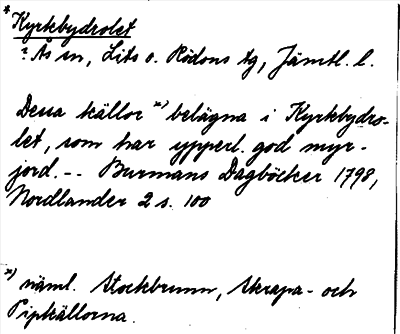 * Kyrkbydrolet
? Ås sn, Lits o. Rödöns tg, Jämtl. l.
Dessa källor x) belägna i Kyrkbydro-
let, som har ypperl. god myr-
jord. -- Burmans Dagböcker 1798,
Nordlander 2 s. 100
x) näml. Stockbrunn, Skrapa- och
Pipkällorna.